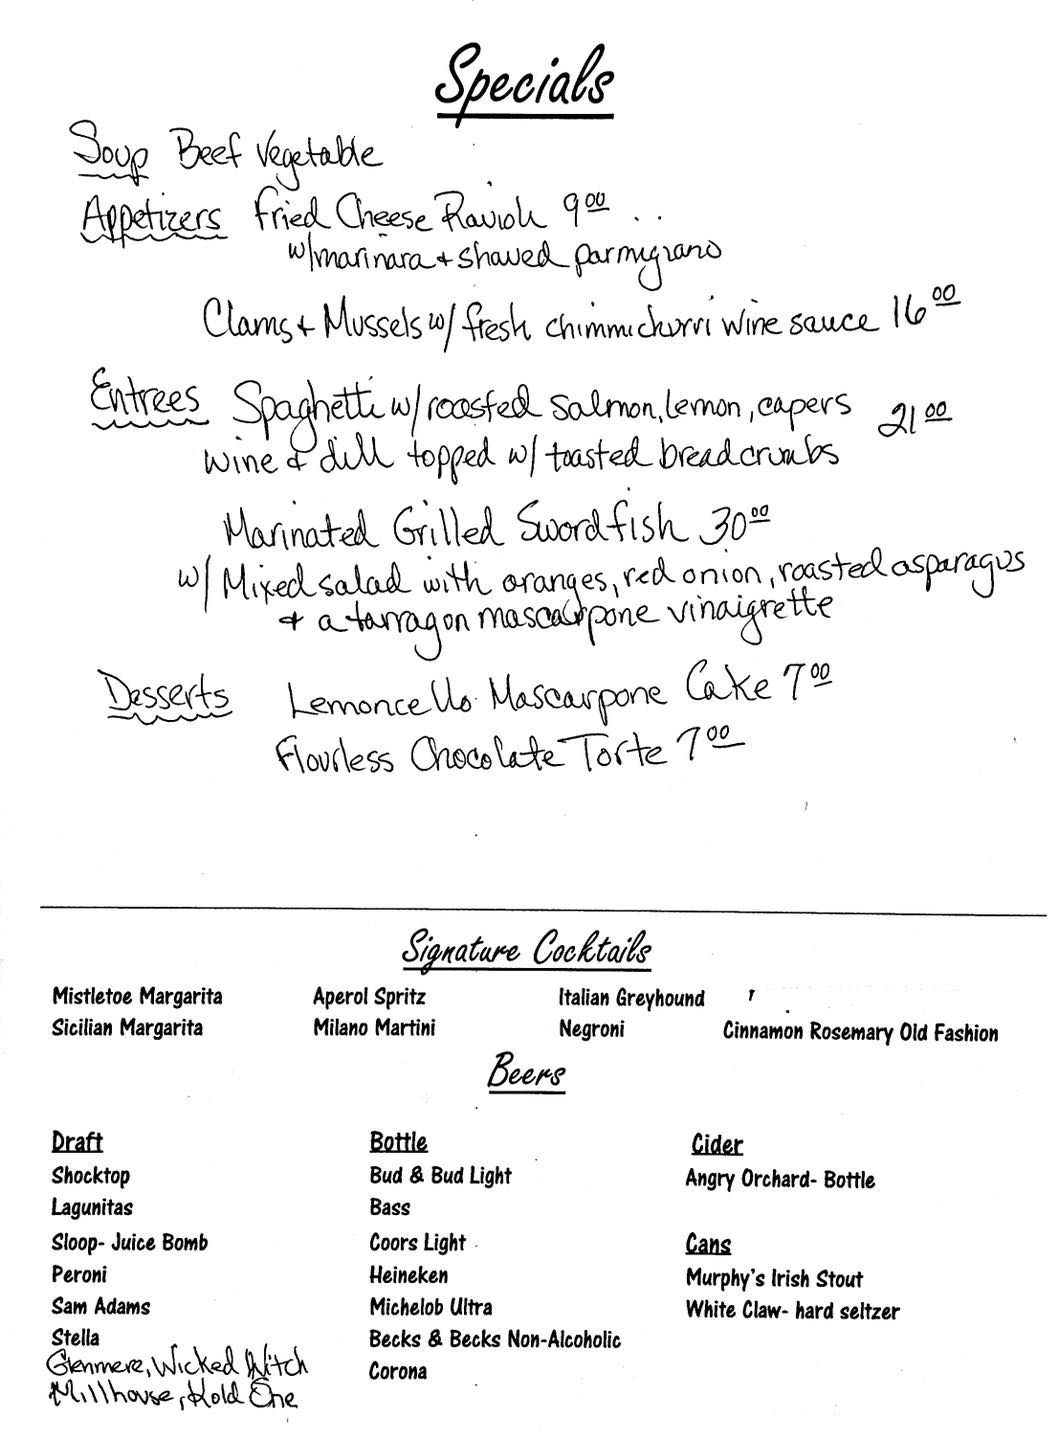 Specials
Soup Beef Vegetable
Appetizers Fried Cheese Ravioli 9.00
w/marinara & shaved parmigiano
Clams & Mussels w/ fresh chimmichurri wine sauce 16.00
Entrees Spaghetti w/roasted salmon, lemon, capers 21.00
wine & dill topped w/ toasted breadcrumbs
Marinated Grilled Swordfish 30.00
w/ Mixed salad with oranges, red onion, roasted asparagus
& a tarragon mascarpone vinaigrette
Desserts Lemoncello Mascarpone Cake 7.00
Flourless Chocolate Torte 7.00
Signature Cocktails
Mistletoe Margarita Aperol Spritz Italian Greyhound
Sicilian Margarita Milano Martini Negroni Cinnamon Rosemary Old Fashion
Beers
Draft
Shocktop
Lagunitas
Sloop- Juice Bomb
Peroni
Sam Adams
Stella
Glenmere, Wicked Witch
Millhouse, Kold One
Bottle
Bud & Bud Light
Bass
Coors Light
Heineken
Michelob Ultra
Becks & Becks Non-Alcoholic
Corona
Cider
Angry Orchard- Bottle
Cans
Murphy's Irish Stout
White Claw- hard seltzer